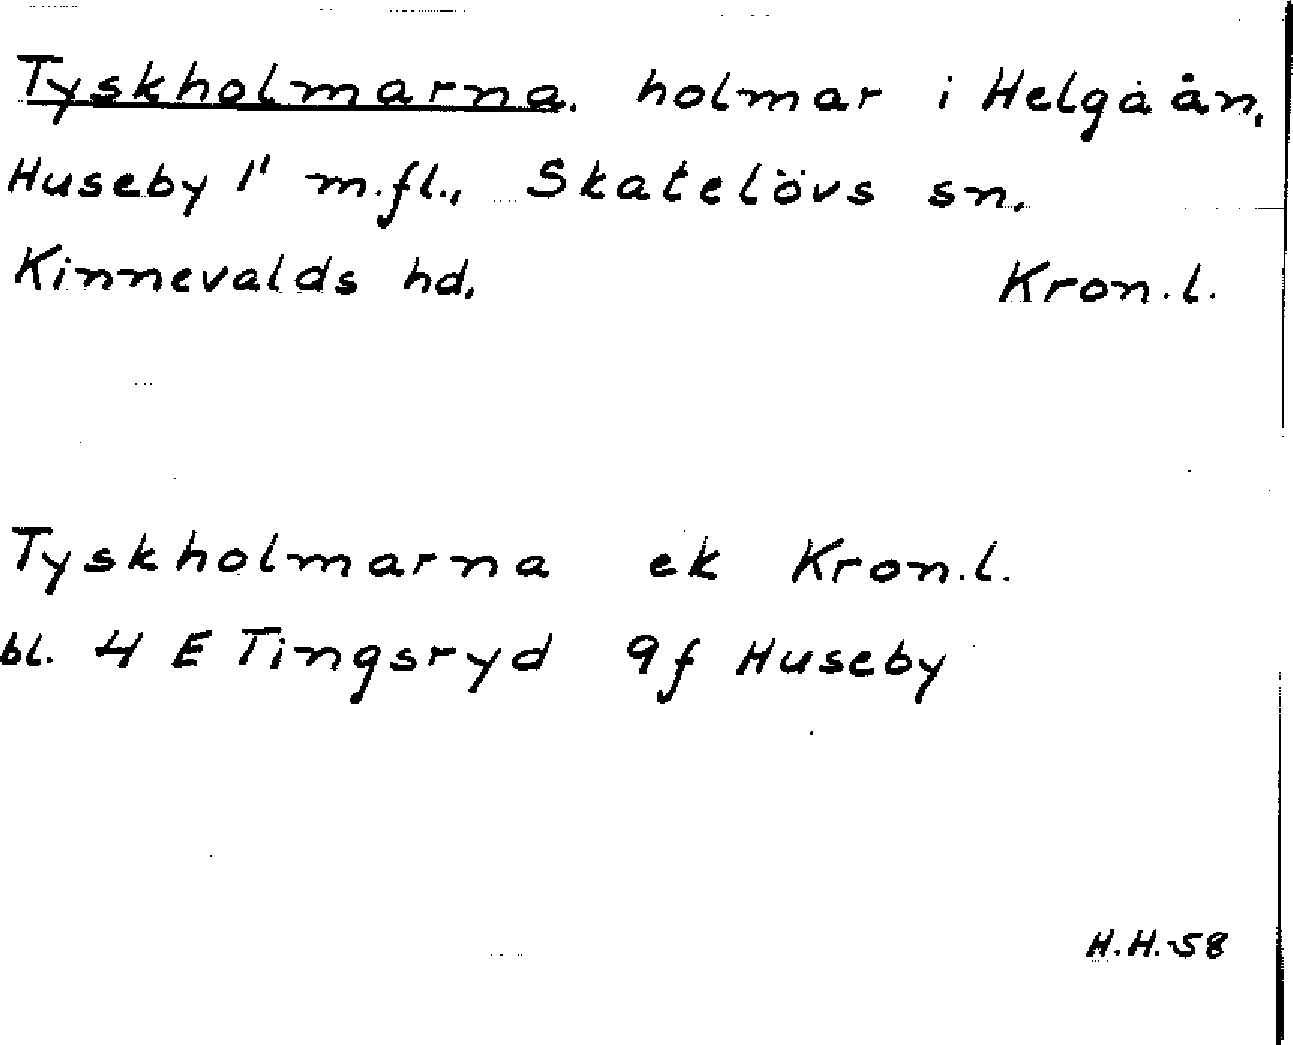 Tyskholmarna. holmar i Helgå ån,
Huseby 1' m.fl., Skatelövs sn,
Kinnevalds hd, Kron.l.
Tyskholmarna ek Kron.l.
bl. 4 E Tingsryd 9f Huseby
H.H.-58